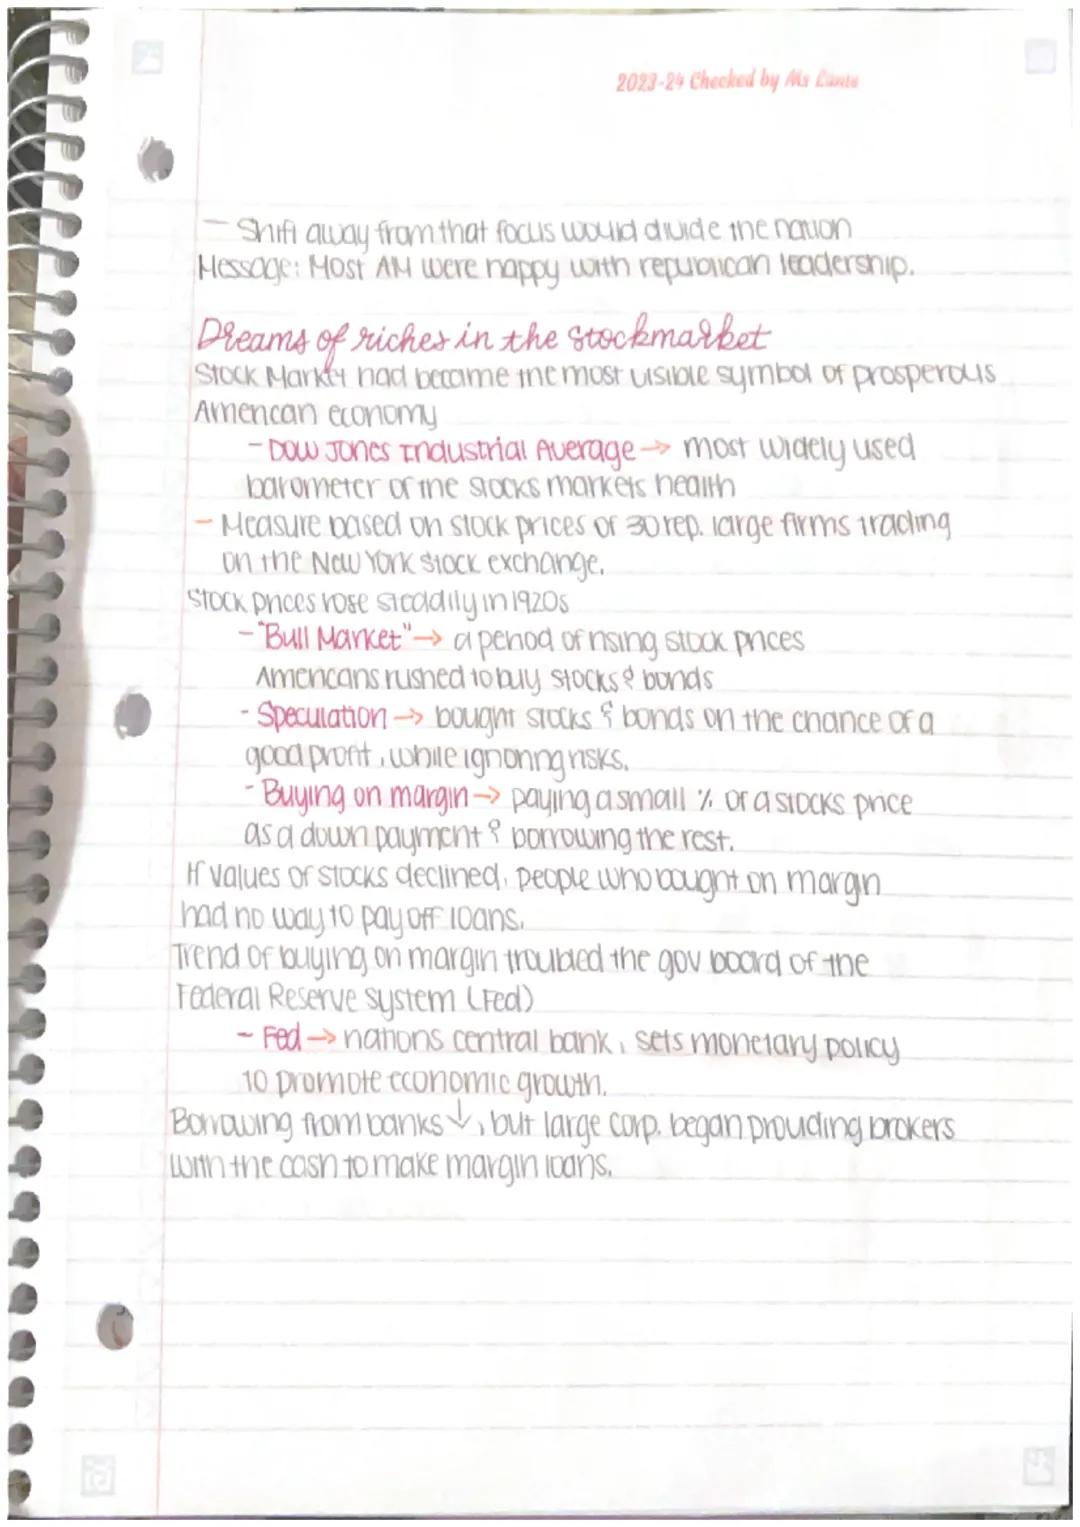 2023-24 Checked by Ms
- Shift away from that focus would divide the nation
Message: Most AM were happy with republican leadership.
Dreams of riches in the stockmarket
Stock Market had become the most visible symbol of prosperous
American economy
- Dow Jones Industrial Average → most widely used
barometer of the stocks markets health
- Measure based on stock prices of 30 rep. large firms trading
on the New York stock exchange.
Stock prices rose steadily in 1920s
- "Bull Market" → a period of rising stock prices
Americans rushed to buy stocks & bonds
- Speculation → bought stocks & bonds on the chance of a
good profit, while ignoring risks.
- Buying on margin → paying a small % of a stocks price
as a down payment & borrowing the rest.
If values of stocks declined, people who bought on margin
had no way to pay off loans.
Trend of buying on margin troubled the gov board of the
Federal Reserve system (Fed)
- Fed → nations central bank, sets monetary policy
to promote economic growth.
Borrowing from banks ↓, but large corp. began providing brokers
with the cash to make margin loans.